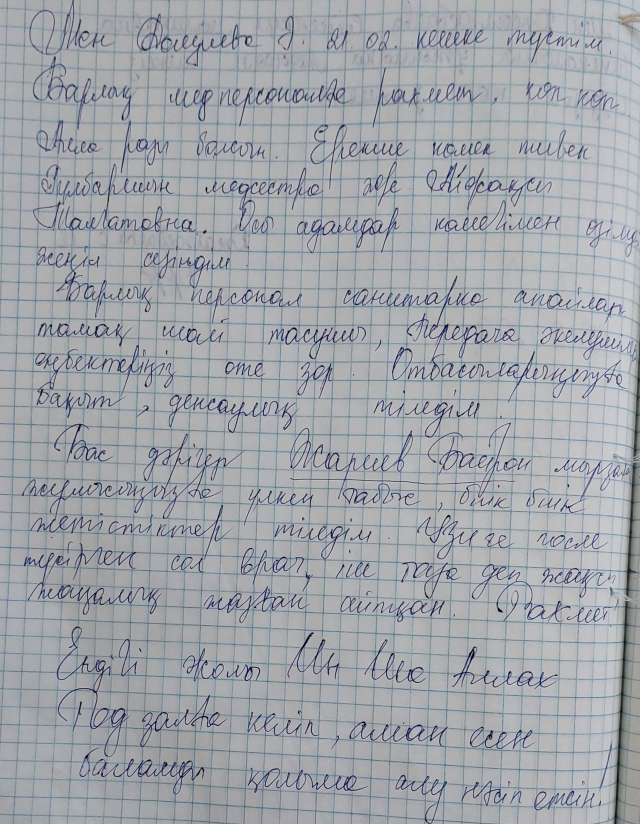 Мен Болуева Э. 21.02. кешке түстім.
Барлық мед персоналға рахмет, коп коп
Алла разы болсын. Ерекше комек тивген
Гулбаршын медсестра және
Талгатовна. Осы адамдар комегімен өзімді
жеңіл сезіндім.
Барлық персонал санитарка апайлар
тамақ шай тасушы, передача
еңбектеріңіз оте зор. Отбасыларыңызға
Бақыт, денсаулық тіледім.
Бас дәрігер Жариев мырзаға
жумысыңызға үлкен табыс, биік биік
жетістіктер тіледім. Узи ге после
түсірген сол врач, іш таза деп жақсы
жаңалық айтқан. Рахмет
Ендігі жолы Ин Ша Аллах
Род залға келіп, аман есен
баламды қолыма алу нәсіп етсін!